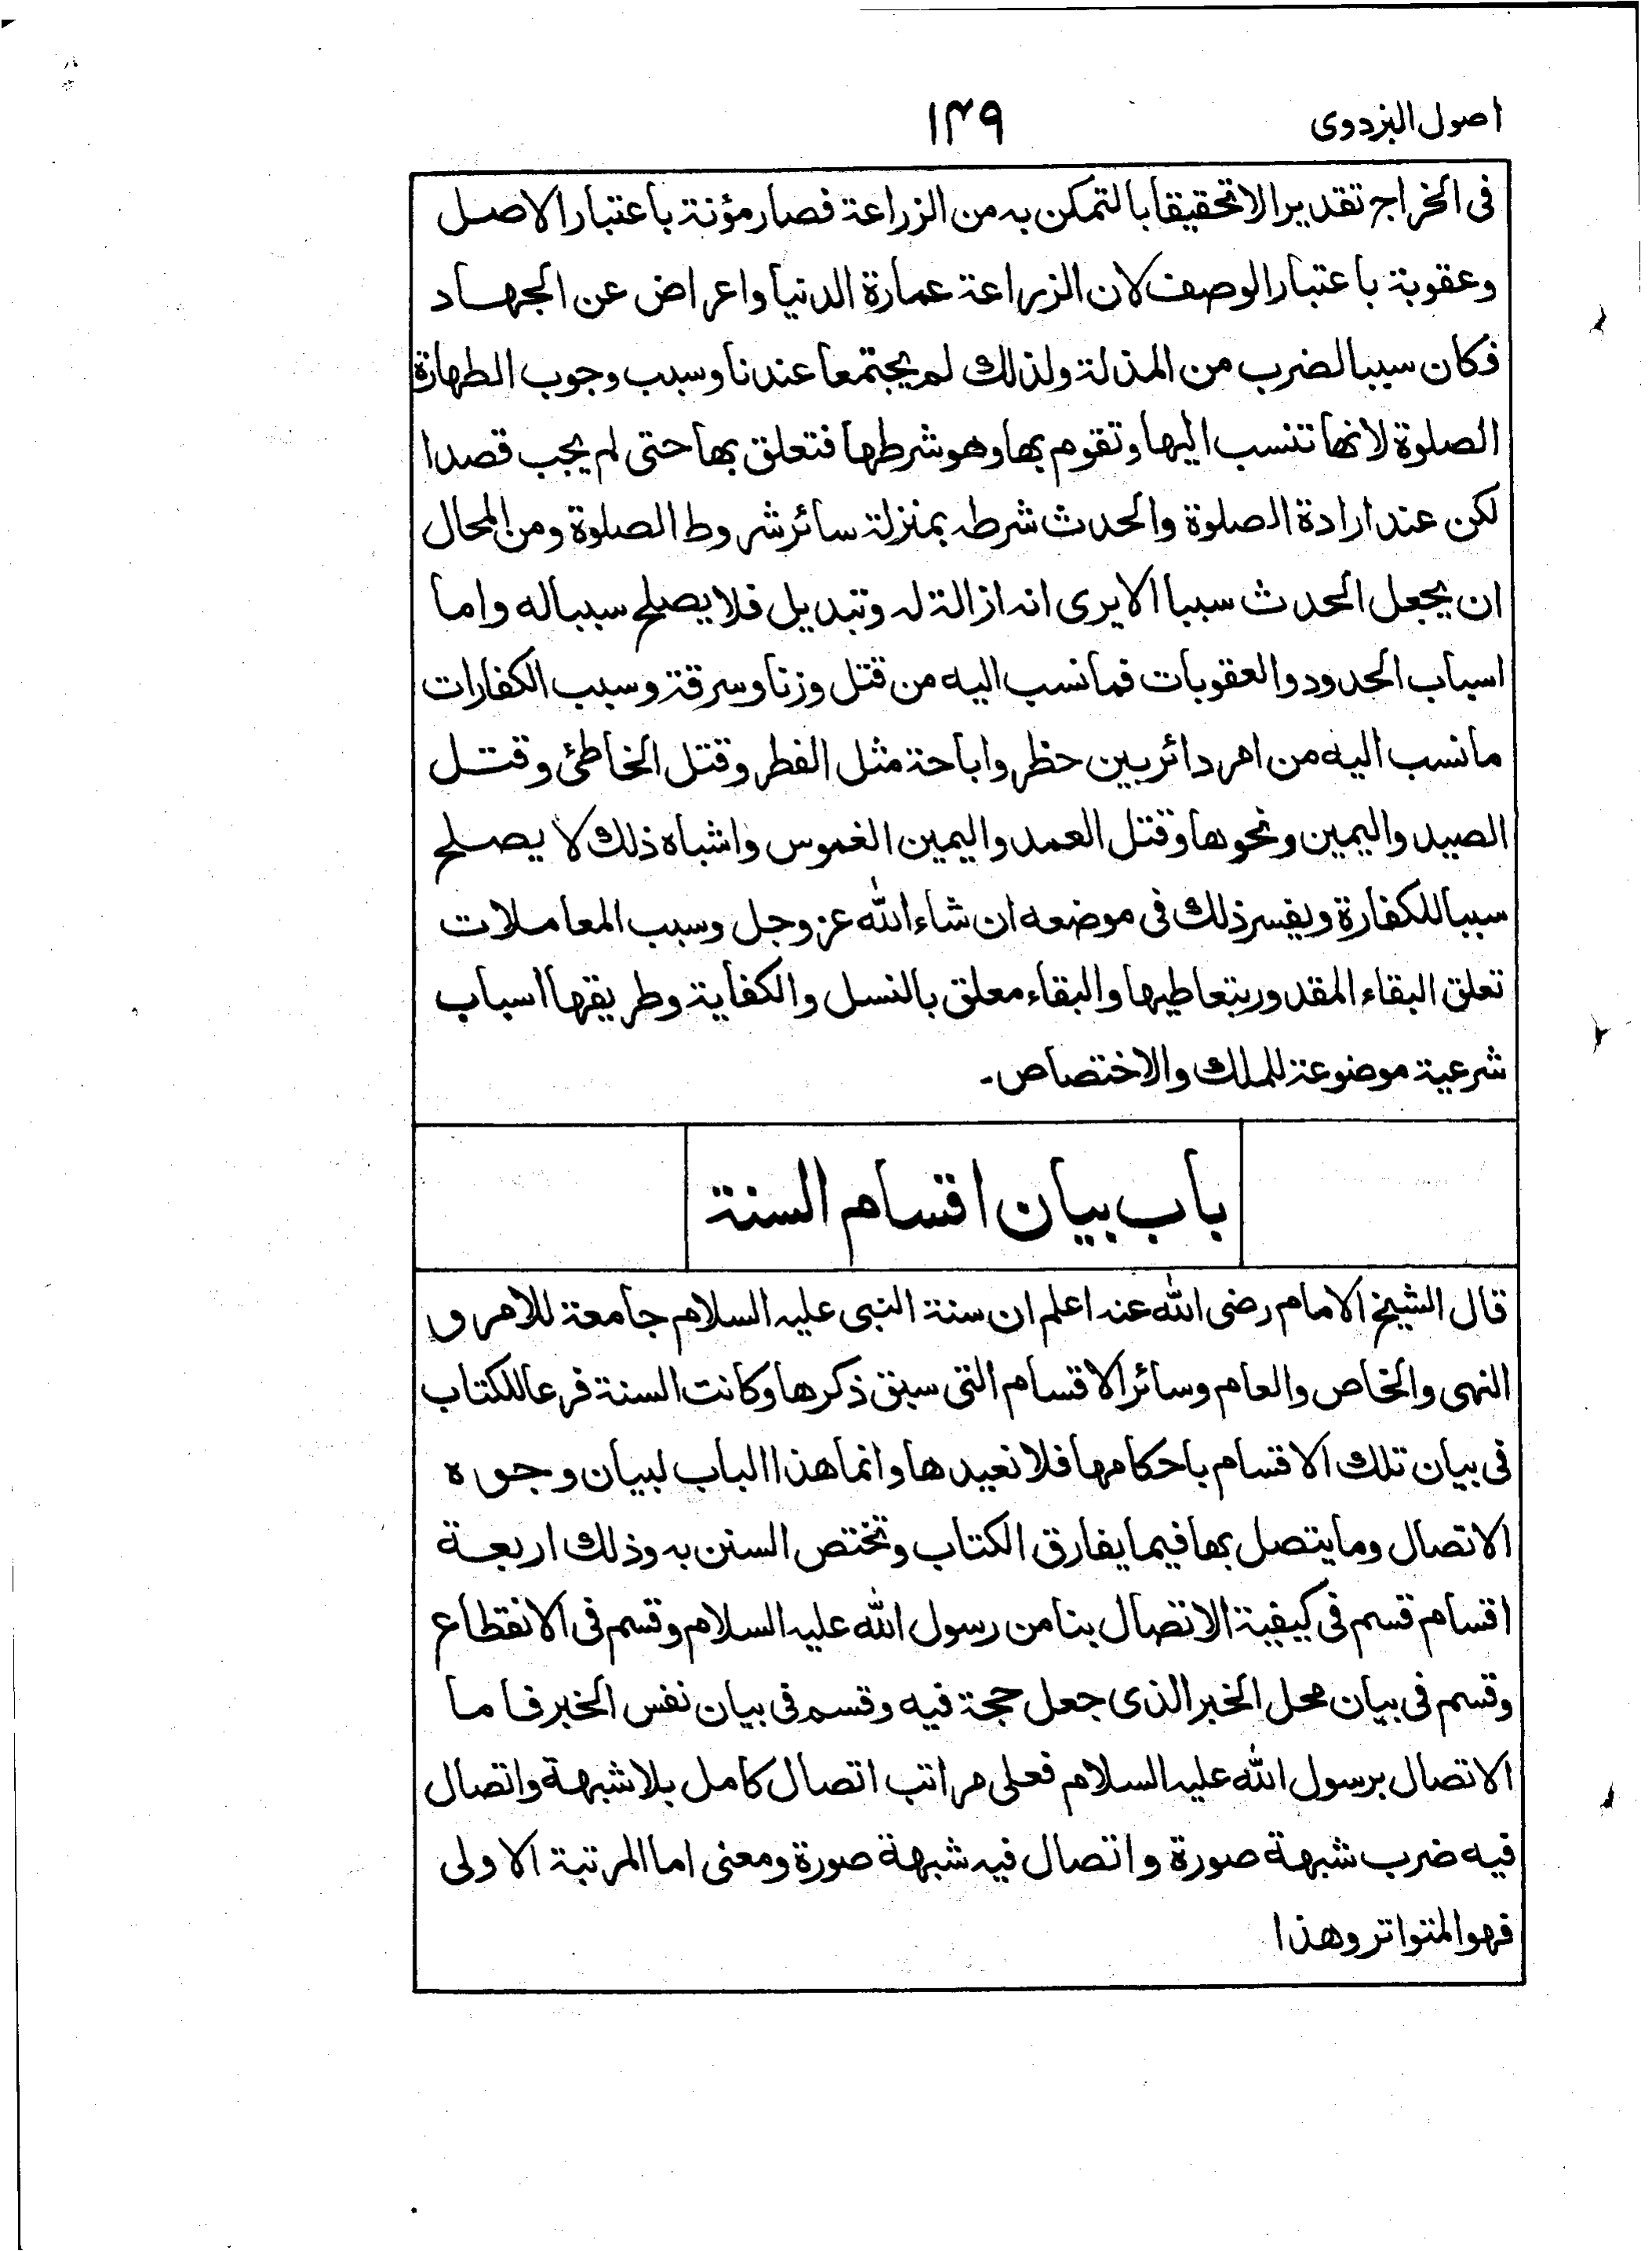 اصول البزدوی ۱۴۹
فی الخراج تقدیرا لا تحقیقا بالتمکن بہ من الزراعۃ فصار مؤنۃ باعتبار الاصل
وعقوبۃ باعتبار الوصف لان الزراعۃ عمارۃ الدنیا واعراض عن الجهاد
فکان سببا لضرب من المذلۃ ولذلك لم یجتمعا عندنا وسبب وجوب الطهارۃ
الصلوۃ لانها تنسب الیها وتقوم بها وهو شرطها فتعلق بها حتی لم یجب قصدا
لکن عند ارادۃ الصلوۃ والحدث شرطہ بمنزلۃ سائر شروط الصلوۃ ومن المحال
ان یجعل الحدث سببا الا یری انہ ازالۃ لہ وتبدیل فلا یصلح سببا له واما
اسباب الحدود والعقوبات فما نسب الیه من قتل وزنا وسرقۃ وسبب الکفارات
ما نسب الیه من امر دائر بین حظر واباحۃ مثل الفطر وقتل الخاطئ وقتل
الصید والیمین ونحوها وقتل العمد والیمین الغموس واشباه ذلك لا یصلح
سببا للکفارۃ ویفسر ذلك فی موضعه ان شاء الله عز وجل وسبب المعاملات
تعلق البقاء المقدور بتعاطیها والبقاء معلق بالنسل والکفایۃ وطریقها اسباب
شرعیۃ موضوعۃ للملك والاختصاص۔
باب بیان اقسام السنۃ
قال الشیخ الامام رضی الله عنہ اعلم ان سنۃ النبی علیہ السلام جامعۃ للامر و
النهی والخاص والعام وسائر الاقسام التی سبق ذکرها وکانت السنۃ فرعا للکتاب
فی بیان تلك الاقسام باحکامها فلا نعیدها وانما هذا الباب لبیان وجوه
الاتصال وما یتصل بها فیما یفارق الکتاب وتختص السنن بہ وذلك اربعۃ
اقسام قسم فی کیفیۃ الاتصال بنا من رسول الله علیہ السلام وقسم فی الانقطاع
وقسم فی بیان محل الخبر الذی جعل حجۃ فیه وقسم فی بیان نفس الخبر فاما
الاتصال برسول الله علیہ السلام فعلی مراتب اتصال کامل بلا شبهۃ واتصال
فیه ضرب شبهۃ صورۃ واتصال فیہ شبهۃ صورۃ ومعنی اما المرتبۃ الاولی
فهو المتواتر وهذا